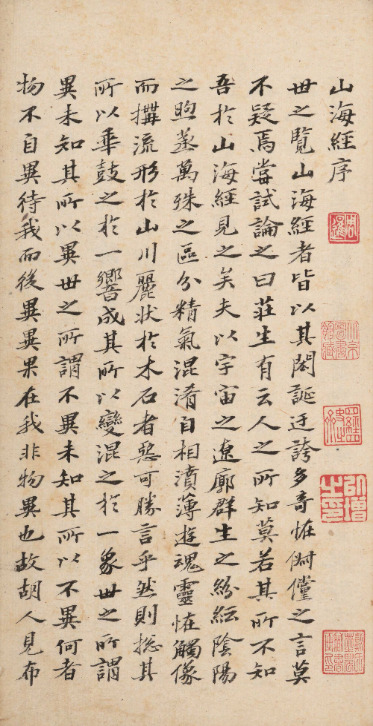 山海經序
世之覽山海經者皆以其閎誕迂誇多奇怪俶儻之言莫
不疑焉嘗試論之曰莊生有云人之所知莫若其所不知
吾於山海經見之矣夫以宇宙之遼廓群生之紛紜陰陽
之煦蒸萬殊之區分精氣混淆自相濆薄遊魂靈怪觸像
而搆流形於山川麗狀於木石者惡可勝言乎然則摠其
所以乖鼓之於一響成其所以變混之於一象世之所謂
異未知其所以異世之所謂不異未知其所以不異何者
物不自異待我而後異異果在我非物異也故胡人見布